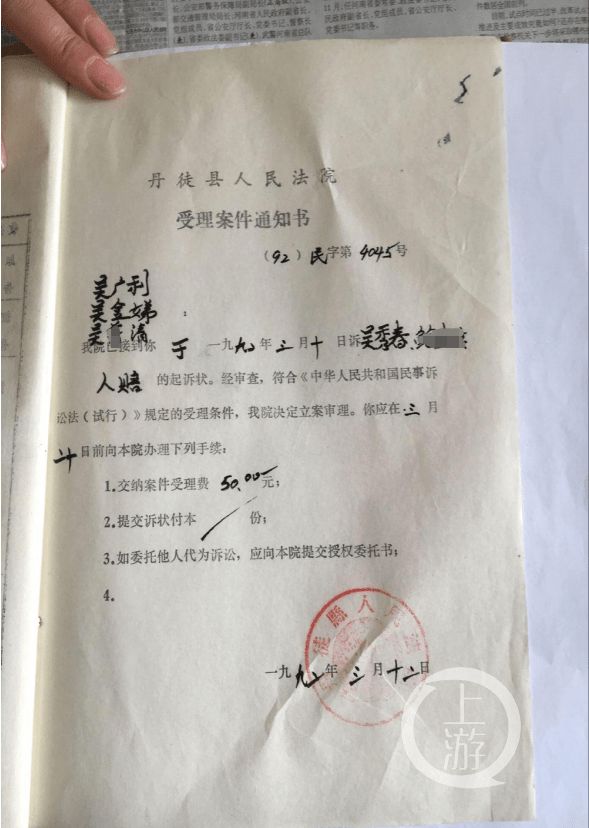 丹徒县人民法院
受理案件通知书
(92)民字第4045号
吴广利
吴金娣
吴 清 :
我院已接到你 于 一九九二年三月十日诉吴季春
人赔 的起诉状。经审查，符合《中华人民共和国民事诉
讼法（试行）》规定的受理条件，我院决定立案审理。你应在三月
廿日前向本院办理下列手续：
1.交纳案件受理费 50.00元；
2.提交诉状付本 份；
3.如委托他人代为诉讼，应向本院提交授权委托书；
4.
徒縣人民法
一九九二年三月十二日
上游